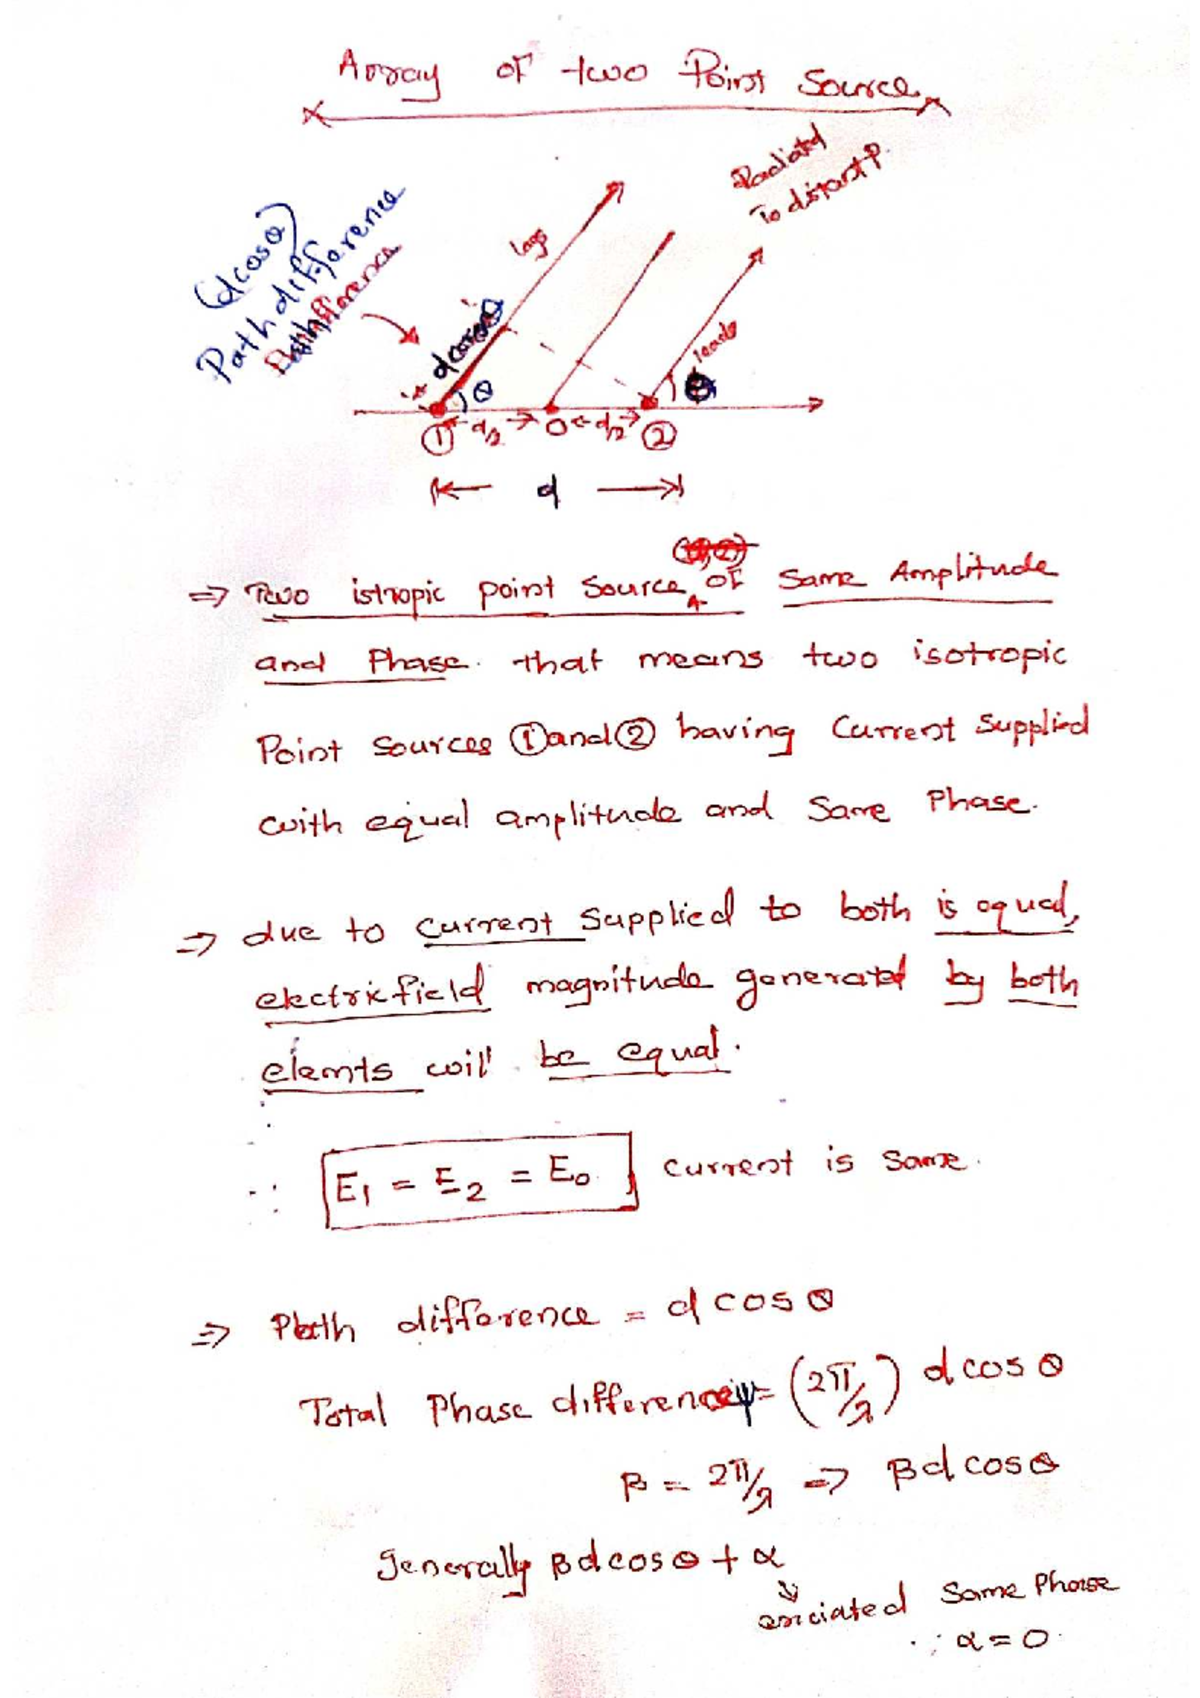 Array of two Point Source
Radiated
To distant P.
(dcosθ)
Path difference
lags
dcosθ
leads
θ
θ
① d/2 0 d/2 ②
d
⇒ Two istropic point Source of Same Amplitude
and Phase. that means two isotropic
Point Sources ① and ② having Current Supplied
with equal amplitude and Same Phase.
⇒ due to current Supplied to both is equal,
electric field magnitude generated by both
elemnts will be equal.
∴ E₁ = E₂ = E₀ Current is Same.
⇒ Path difference = d cos θ
Total Phase difference ψ = (2π/λ) d cos θ
β = 2π/λ ⇒ βd cos θ
Generally βd cos θ + α
Same Phase
∴ α = 0